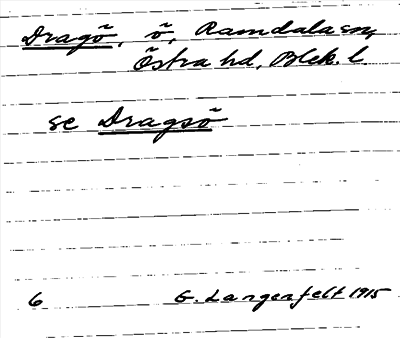 Dragö, ö, Ramdala sn,
Östra hd, Blek. l.
se Dragsö
6 G. Langenfelt 1915